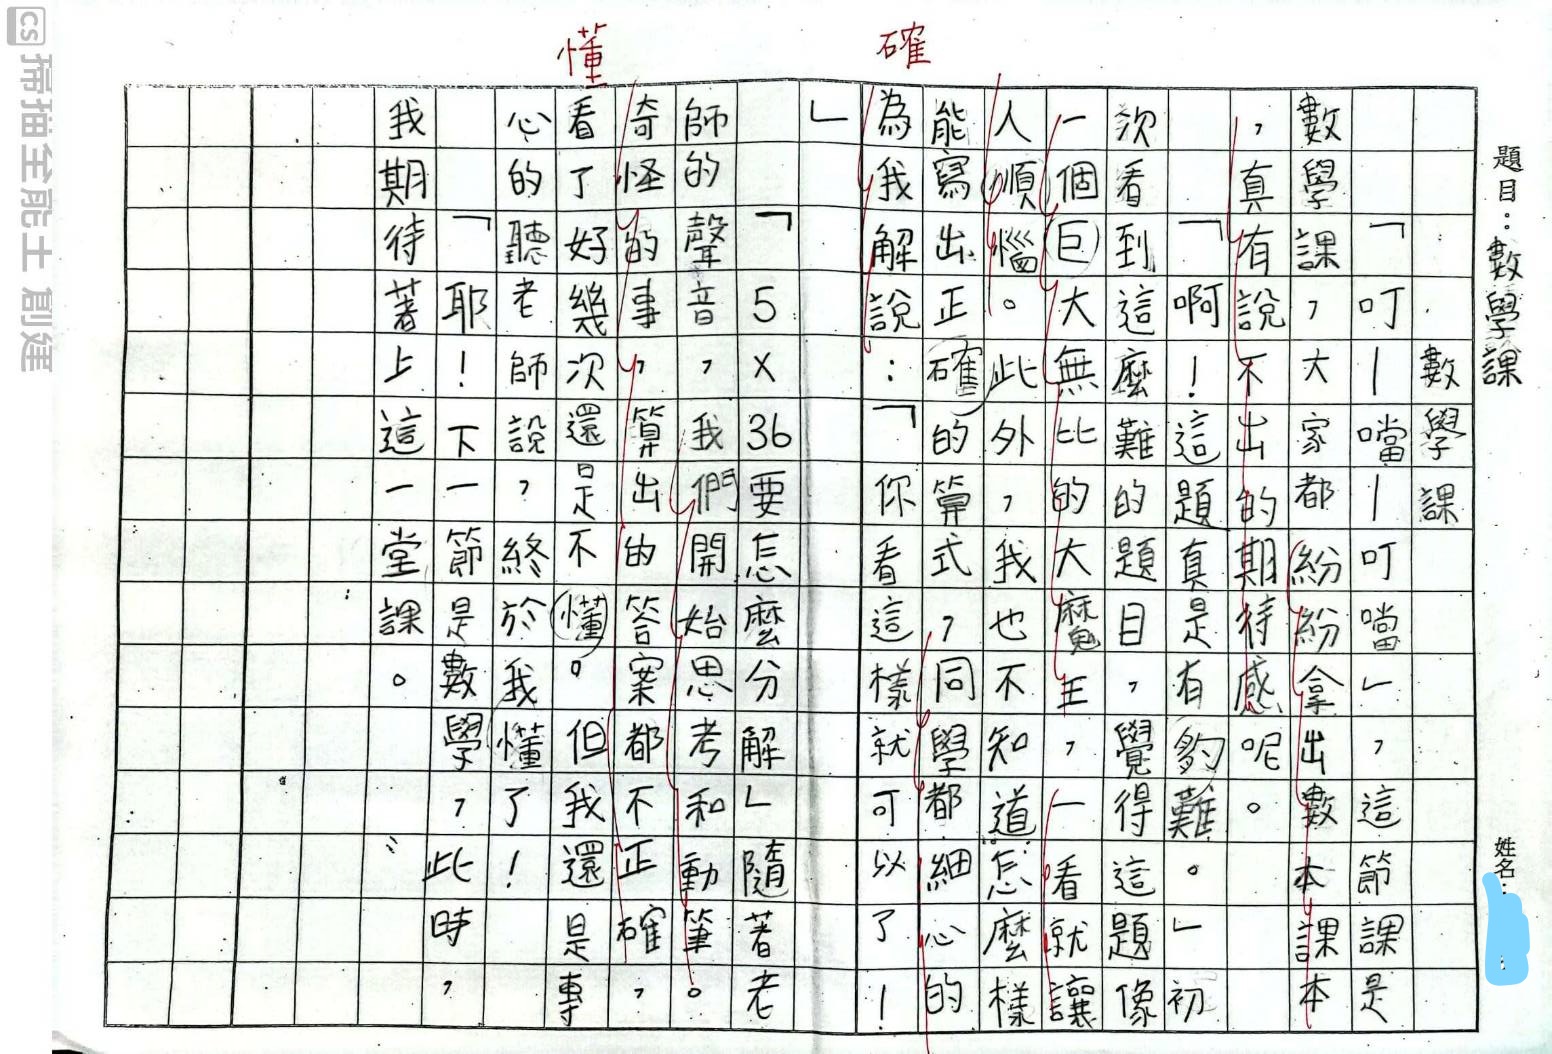 題目：數學課
姓名：
確
懂
數學課
「叮—噹—叮噹」，這節課是
數學課，大家都紛紛拿出數本課本
，真有說不出的期待感呢。
「啊！這題真是有夠難。」初
次看到這麼難的題目，覺得這題像
一個巨大無比的大魔王，一看就讓
人順惱。此外，我也不知道怎麼樣
能寫出正確的算式，同學都細心的
為我解說：「你看這樣就可以了！
」
「5×36要怎麼分解」隨著老
師的聲音，我們開始思考和動筆。
奇怪的事，算出的答案都不正確，
看了好幾次還是不懂。但我還是專
心的聽老師說，終於我懂了！
「耶！下一節是數學，此時，
我期待著上這一堂課。
CS掃描全能王 創建